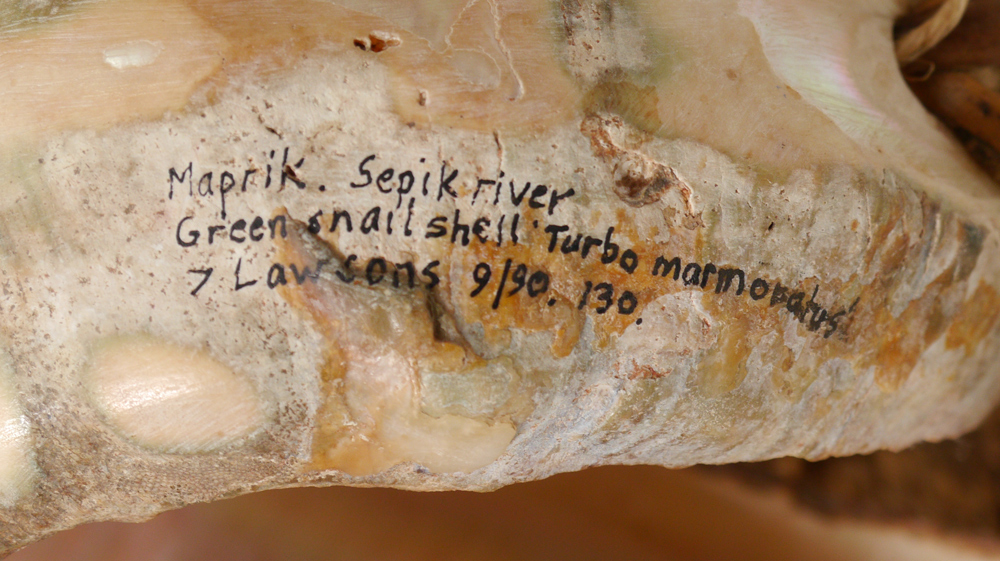 Maprik. Sepik river
Green snail shell 'Turbo marmoratus'
> Lawsons 9/90. 130.